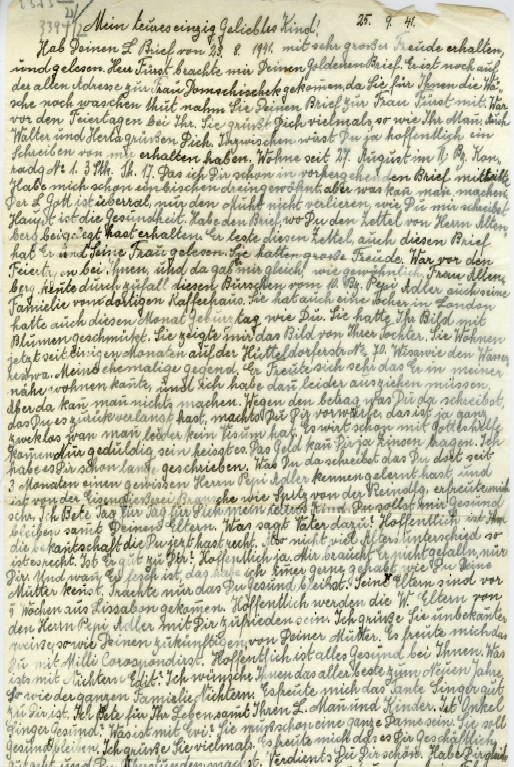 Mein teures einzig Geliebtes Kind! 25. 9. 41.
Hab Deinen L. Brief von 28. 8. 1941. mit sehr großer Freude erhalten,
und gelesen. Herr Fürst brachte mir Deinen Goldenen Brief. Er ist noch auf
der alten Adresse zur Frau gekomen, da Sie für Ihnen die Wä-
sche noch waschen thut nahm Sie Deinen Brief zur Frau Fürst mit. War
vor den Feiertagen bei Ihr. Sie grüßt Dich vielmals, so wie Ihr Man. Auch
Walter und Herta grüßen Dich. Inzwischen wirst Du ja hoffentlich ein
Schreiben von mir erhalten haben. Wohne seit 27. August im II. Bz.
No 1. 3 Stk. Th. 17. Das ich Dir schon in vorhergehenden Brief mitteilte
Habe mich schon ein bischen dreingewöhnt, aber was kan man machen.
Der L. Gott ist überal, nur den Muth nicht verlieren, wie Du mir schreibst
Haupt ist die Gesundheit. Habe den Brief, wo Du den Zettel von Herrn Alten-
berg beigelegt hast erhalten. Er leste diesen Zettel, auch diesen Brief
hat Er und Seine Frau gelesen. Sie hatten große Freude. War vor den
Feiert en bei Ihnen, und da gab mir gleich, wie gewöhnlich, Frau Alten-
berg. Heute durch zufall diesen Burschen vom 10. Bz. Pepi Adler auch seine
Familie von dortigen Kaffeehaus. Sie hat auch eine Tochter in London
hatte auch diesen Monat Geburtstag, wie Du. Sie hatte Ihr Bild mit
Blumen geschmückt. Sie zeigte mir das Bild von Ihrer Tochter. Sie Wohnen
jetzt seit einigen Monaten auf der Hütteldorferstr. No 70. Wisawie den Wasser-
reservoa. Meine ehemalige gegend. Er Freute sich sehr das Er in meiner
nähe wohnen kante, und ich habe dan leider ausziehen müssen,
Aber da kan man nichts machen. Wegen den betrag was Du da schreibst,
das Du es zurück verlangt hast, machst Du Dir vorwürfe, das ist ja ganz
zwecklos, wan man leider kein Visum hat. Es wirt schon mit Gotteshilfe
komen. Nur geduldig sein heisst es. Das Geld kan Dir ja zinsen tragen. Ich
habe es Dir schon lange geschrieben. Was Du da schreibst das Du dort seit
3 Monaten einen gewissen Herrn Pepi Adler kennen gelernt hast, und
ist von der Branche wie Spitz von der, erfreute mich
sehr. Ich Bete Tag für Tag für Dich mein teures Kind. Du sollst mir Gesund
bleiben samt Deinen Eltern. Was sagt Vater dazu? Hoffentlich ist Ihm
die bekantschaft die Du jezt hast recht. Also nicht viel Altersunterschied so
ist es recht. Ist Er gut zu Dir? Hoffentlich ja. Mir braucht Er nicht gefalln, nur
Dir. Und wan Er fesch ist, das habe ich imer gerne gehabt wie Du Deine
Mutter kenst. Trachte nur das Du Gesund bleibst. Seine Eltern sind vor
5 Wochen aus Lissabon gekomen. Hoffentlich werden die W. Eltern von
den Herrn Pepi Adler mit Dir zufrieden sein. Ich grüße Sie unbekanter
weise, so wie Deinen zukünftigen, von Deiner Mutter. Es freute mich das
Du mit Milli Corospondirst. Hoffentlich ist alles Gesund bei Ihnen. Was
ists mit Edit? Ich wünsche Ihnen das aller beste zum Neuen Jahre
So wie der ganzen Familie. Es freute mich das Tante Singer gut
zu Dir ist. Ich Bete für Ihr Leben samt Ihren L. Man und Kinder. Ist Onkel
Singer Gesund? Was ist mit Evi? Sie muß schon eine ganze Dame sein. Sie soll
Gesund bleiben. Ich grüße Sie vielmals. Es freute mich das es Dir Geschäftlich
und Du machst. Verdienst Du Dir schön. Habe Dir gleich